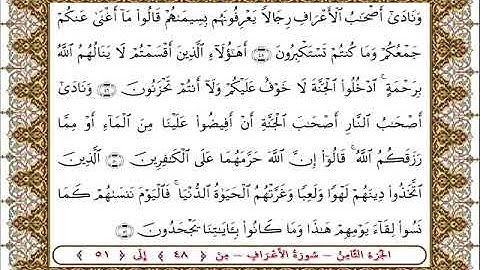 وَنَادَىٰٓ أَصْحَـٰبُ ٱلْأَعْرَافِ رِجَالًا يَعْرِفُونَهُم بِسِيمَـٰهُمْ قَالُوا۟ مَآ أَغْنَىٰ عَنكُمْ
جَمْعُكُمْ وَمَا كُنتُمْ تَسْتَكْبِرُونَ ۝٤٨ أَهَـٰٓؤُلَآءِ ٱلَّذِينَ أَقْسَمْتُمْ لَا يَنَالُهُمُ ٱللَّهُ
بِرَحْمَةٍ ۚ ٱدْخُلُوا۟ ٱلْجَنَّةَ لَا خَوْفٌ عَلَيْكُمْ وَلَآ أَنتُمْ تَحْزَنُونَ ۝٤٩ وَنَادَىٰٓ
أَصْحَـٰبُ ٱلنَّارِ أَصْحَـٰبَ ٱلْجَنَّةِ أَنْ أَفِيضُوا۟ عَلَيْنَا مِنَ ٱلْمَآءِ أَوْ مِمَّا
رَزَقَكُمُ ٱللَّهُ ۚ قَالُوٓا۟ إِنَّ ٱللَّهَ حَرَّمَهُمَا عَلَى ٱلْكَـٰفِرِينَ ۝٥٠ ٱلَّذِينَ
ٱتَّخَذُوا۟ دِينَهُمْ لَهْوًا وَلَعِبًا وَغَرَّتْهُمُ ٱلْحَيَوٰةُ ٱلدُّنْيَا ۚ فَٱلْيَوْمَ نَنسَىٰهُمْ كَمَا
نَسُوا۟ لِقَآءَ يَوْمِهِمْ هَـٰذَا وَمَا كَانُوا۟ بِـَٔايَـٰتِنَا يَجْحَدُونَ ۝٥١
الجزء الثامن - سورة الأعراف - من ﴿ ٤٨ ﴾ إلى ﴿ ٥١ ﴾